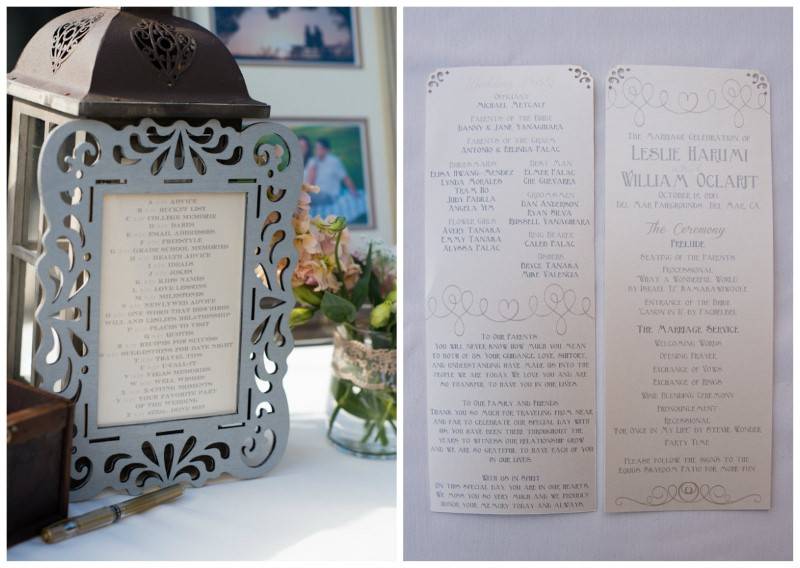 A ADVICE
B BUCKET LIST
C COLLEGE MEMORIE
D DARES
E EMAIL ADDRESSES
F FREESTYLE
G GRADE SCHOOL MEMORIES
H HEALTH ADVICE
I IDEALS
J JOKES
K KIDS NAMES
L LOVE LESSONS
M MILESTONES
N NEWLYWED ADVICE
O ONE WORD THAT DESCRIBES
WILL AND LESLIE'S RELATIONSHIP
P PLACES TO VISIT
Q QUOTES
R RECIPES FOR SUCCESS
S SUGGESTIONS FOR DATE NIGHT
T TRAVEL TIPS
U U-CALL-IT
V VEGAS MEMORIES
W WELL WISHES
X X-CITING MOMENTS
Y YOUR FAVORITE PART
OF THE WEDDING
Officiant
Michael Metcalf
Parents of the Bride
Danny & Jane Yanagihara
Parents of the Groom
Antonio & Belinda Palac
Bridesmaids
Elisa Hwang-Mendez
Lynda Morales
Tram Ho
Judy Padilla
Angela Yim
Flower Girls
Avery Tanaka
Emmy Tanaka
Alyssa Palac
Best Man
Elmer Palac
Che Guevarra
Groomsmen
Dan Anderson
Ryan Silva
Russell Yanagihara
Ring Bearer
Caleb Palac
Ushers
Bryce Tanaka
Mike Valencia
To Our Parents
You will never know how much you mean
to both of us. Your guidance, love, support,
and understanding have made us into the
people we are today. We love you and are
so thankful to have you in our lives.
To Our Family and Friends
Thank you so much for traveling from near
and far to celebrate our special day with
us. You have been there throughout the
years to witness our relationship grow
and we are so grateful to have each of you
in our lives.
With us in Spirit
On this special day, you are in our hearts.
We miss you so very much and we proudly
honor your memory today and always.
The Marriage Celebration of
Leslie Harumi
William Oclarit
Del Mar Fairgrounds, Del Mar, CA
The Ceremony
Prelude
Seating of the Parents
Processional
"What a Wonderful World"
by Israel "IZ" Kamakawiwo'ole
Entrance of the Bride
"Canon in D" by Pachelbel
The Marriage Service
Welcoming Words
Opening Prayer
Exchange of Vows
Exchange of Rings
Wine Blending Ceremony
Pronouncement
Recessional
"For Once in My Life" by Stevie Wonder
Party Time
Please follow the signs to the
Equus Skyroom Patio for more fun